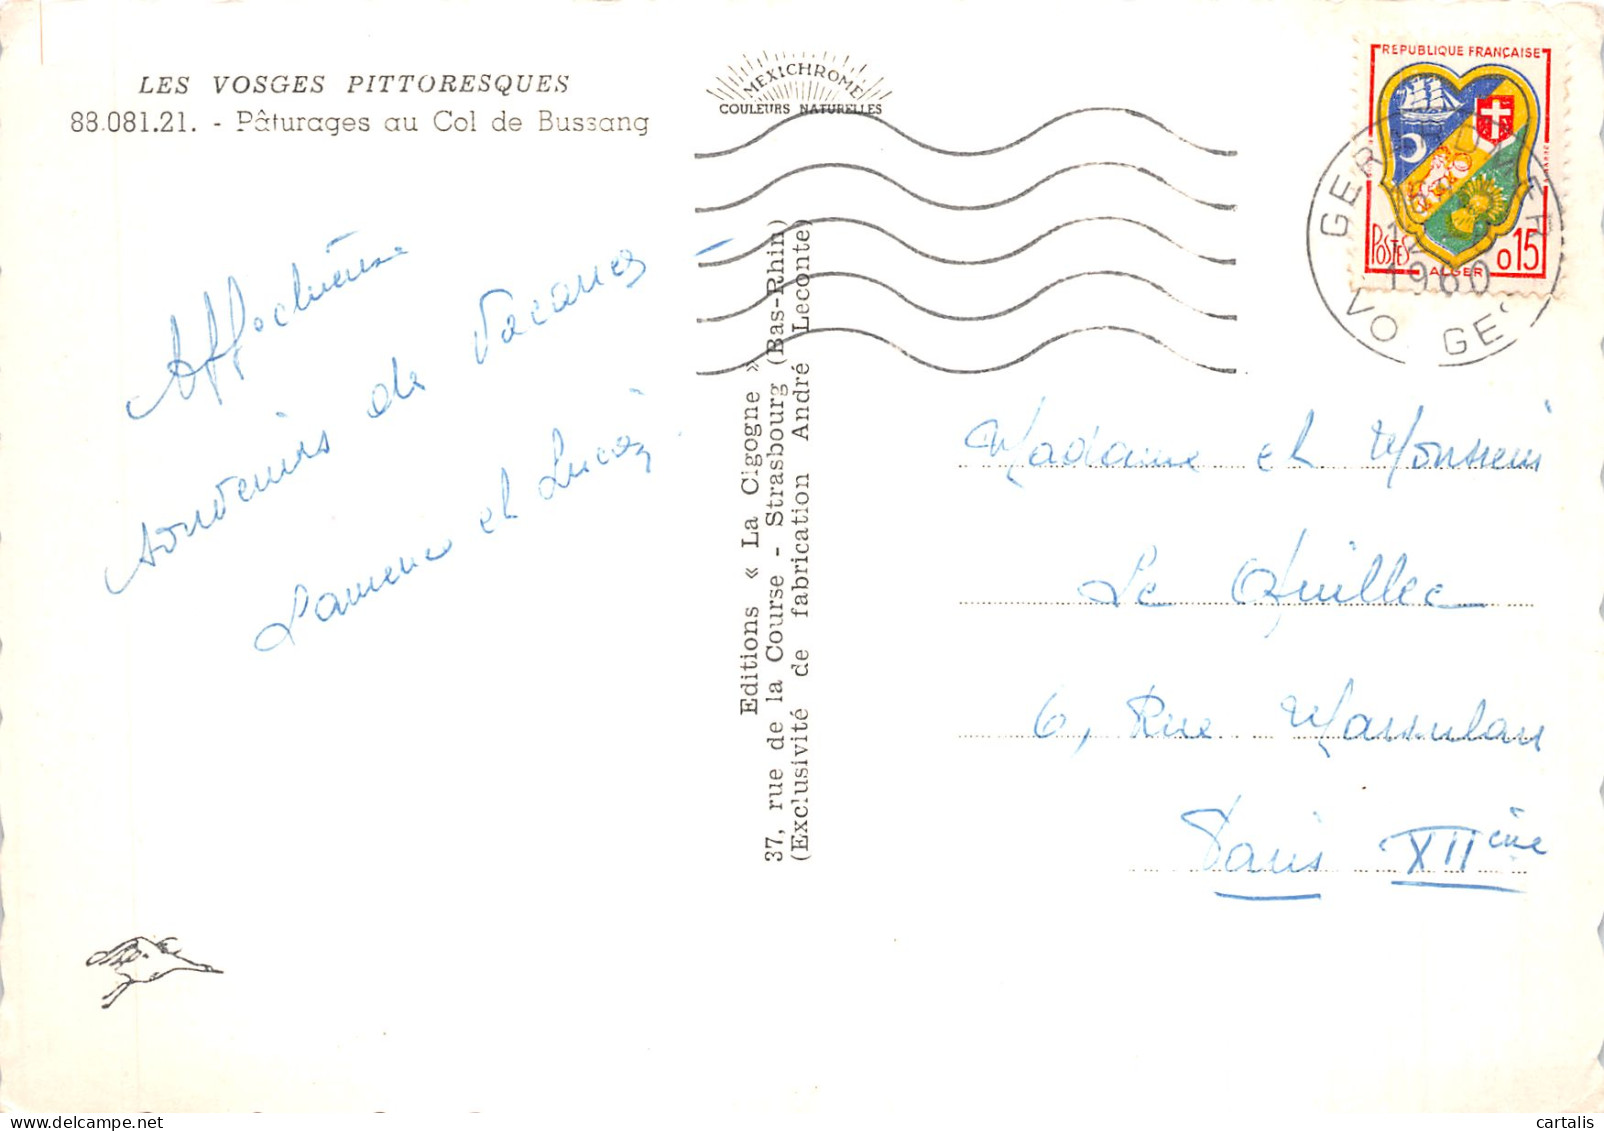 LES VOSGES PITTORESQUES
88.081.21. - Pâturages au Col de Bussang
MEXICHROME
COULEURS NATURELLES
REPUBLIQUE FRANÇAISE
POSTES
ALGER
0.15
GERARDMER
12
1960
VOSGES
Affectueux
souvenirs de Vacances
Laurence et Lucien
Editions « La Cigogne »
37, rue de la Course - Strasbourg (Bas-Rhin)
(Exclusivité de fabrication André Leconte)
Madame et Monsieur
Le Quillec
6, Rue
Paris XIIème
cartalis | Delcampe.net